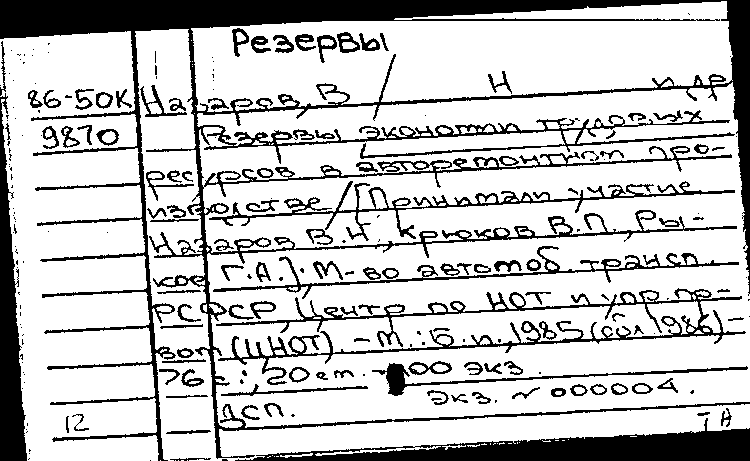 Резервы
86-50К Назаров, В Н и др
9870 Резервы экономии трудовых
ресурсов в авторемонтном про-
изводстве / [Принимали участие
Назаров В.Н., Крюков В.П., Ры-
ков Г.А.]; М-во автомоб. трансп.
РСФСР, Центр по НОТ и упр. пр-
вом (ЦНОТ). - М.: Б. и., 1985 (обл 1986) -
76 с.; 20 см. - 100 экз.
Экз. № 000004.
12 ДСП.